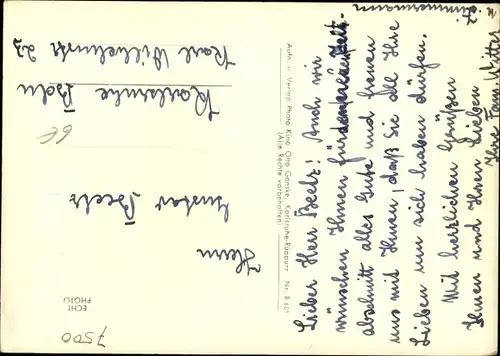 Lieber Herr Beetz! Auch wir
wünschen Ihnen für den neuen Zeit-
abschnitt alles Gute und freuen
uns mit Ihnen, daß Sie all Ihre
Lieben um sich haben dürfen.
Mit herzlichen Grüßen
Ihnen und Ihren Lieben
Ihre Fam. Witter
u. Zimmermann
Aufn. u. Verlag Photo Kino Otto Ganske, Karlsruhe-Rüppurr Nr. R 601
(Alle Rechte vorbehalten)
Herrn
Gustav Beetz
Karlsruhe Bahn
Karl Wilhelmstr 23
6€
ECHT
PHOTO
7500